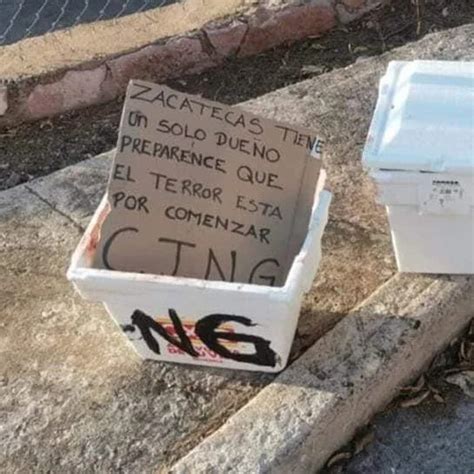 ZACATECAS TIENE
UN SOLO DUEÑO
PREPARENCE QUE
EL TERROR ESTA
POR COMENZAR
C.J.N.G
NG